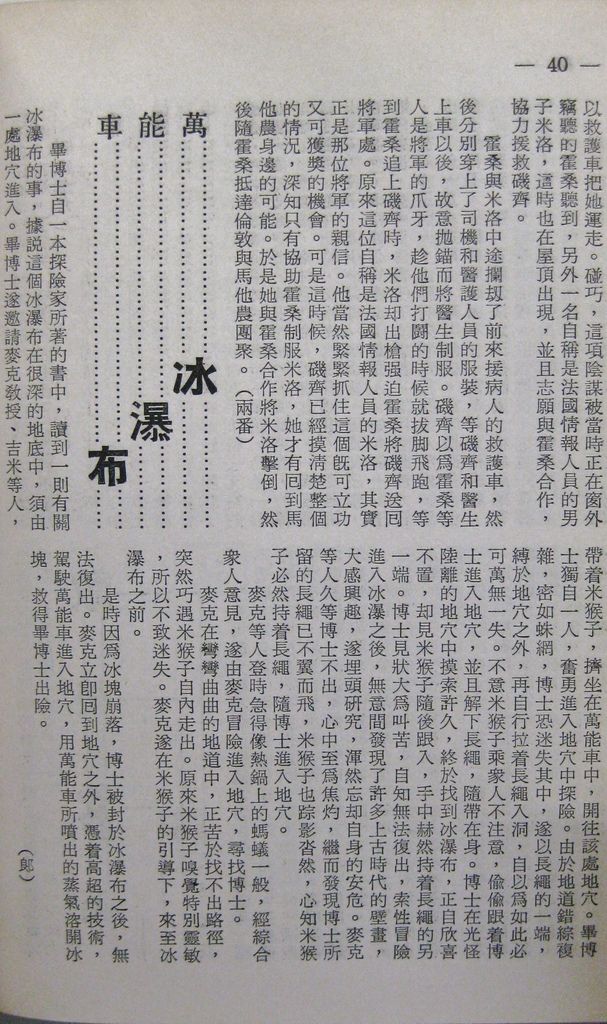 — 40 —
以救護車把她運走。碰巧，這項陰謀被當時正在窗外
竊聽的霍桑聽到，另外一名自稱是法國情報人員的男
子米洛，這時也在屋頂出現，並且志願與霍桑合作，
協力援救磯齊。
霍桑與米洛中途攔刧了前來接病人的救護車，然
後分別穿上了司機和醫護人員的服裝，等磯齊和醫生
上車以後，故意拋錨而將醫生制服。磯齊以爲霍桑等
人是將軍的爪牙，趁他們打鬪的時候就拔脚飛跑，等
到霍桑追上磯齊時，米洛却出槍强迫霍桑將磯齊送囘
將軍處。原來這位自稱是法國情報人員的米洛，其實
正是那位將軍的親信。他當然緊緊抓住這個旣可立功
又可獲獎的機會。可是這時候，磯齊已經摸清楚整個
的情況，深知只有協助霍桑制服米洛，她才有囘到馬
他農身邊的可能。於是她與霍桑合作將米洛擊倒，然
後隨霍桑抵達倫敦與馬他農團聚。（兩番）
萬能車
冰瀑布
畢博士自一本探險家所著的書中，讀到一則有關
冰瀑布的事，據說這個冰瀑布在很深的地底中，須由
一處地穴進入。畢博士遂邀請麥克敎授、吉米等人，
帶着米猴子，擠坐在萬能車中，開往該處地穴。畢博
士獨自一人，奮勇進入地穴中探險。由於地道錯綜複
雜，密如蛛網，博士恐迷失其中，遂以長繩的一端，
縛於地穴之外，再自行拉着長繩入洞，自以爲如此必
可萬無一失。不意米猴子乘衆人不注意，偷偷跟着博
士進入地穴，並且解下長繩，隨帶在身。博士在光怪
陸離的地穴中摸索許久，終於找到冰瀑布，正自欣喜
不置，却見米猴子隨後跟入，手中赫然持着長繩的另
一端。博士見狀大爲叫苦，自知無法復出，索性冒險
進入冰瀑之後，無意間發現了許多上古時代的壁畫，
大感興趣，遂埋頭研究，渾然忘却自身的安危。麥克
等人久等博士不出，心中至爲焦灼，繼而發現博士所
留的長繩已不翼而飛，米猴子也踪影杳然，心知米猴
子必然持着長繩，隨博士進入地穴。
麥克等人登時急得像熱鍋上的螞蟻一般，經綜合
衆人意見，遂由麥克冒險進入地穴，尋找博士。
麥克在彎彎曲曲的地道中，正苦於找不出路徑，
突然巧遇米猴子自內走出。原來米猴子嗅覺特別靈敏
，所以不致迷失。麥克遂在米猴子的引導下，來至冰
瀑布之前。
是時因爲冰塊崩落，博士被封於冰瀑布之後，無
法復出。麥克立卽囘到地穴之外，憑着高超的技術，
駕駛萬能車進入地穴，用萬能車所噴出的蒸氣溶開冰
塊，救得畢博士出險。
（郞）